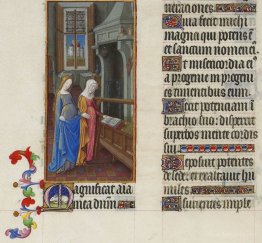 nerationes.
Quia fecit michi
magna qui potens e
et sanctum nomen eĩ
Et misericordia eĩ a
a progenie in progeni
es timentibus eum
Fecit potenciam in
brachio suo: dispersit
superbos mente cordis
sui
Deposuit potentes
de sede: et exaltauit hu
miles
Esurientes imple
Magnificat aĩa
mea dñm